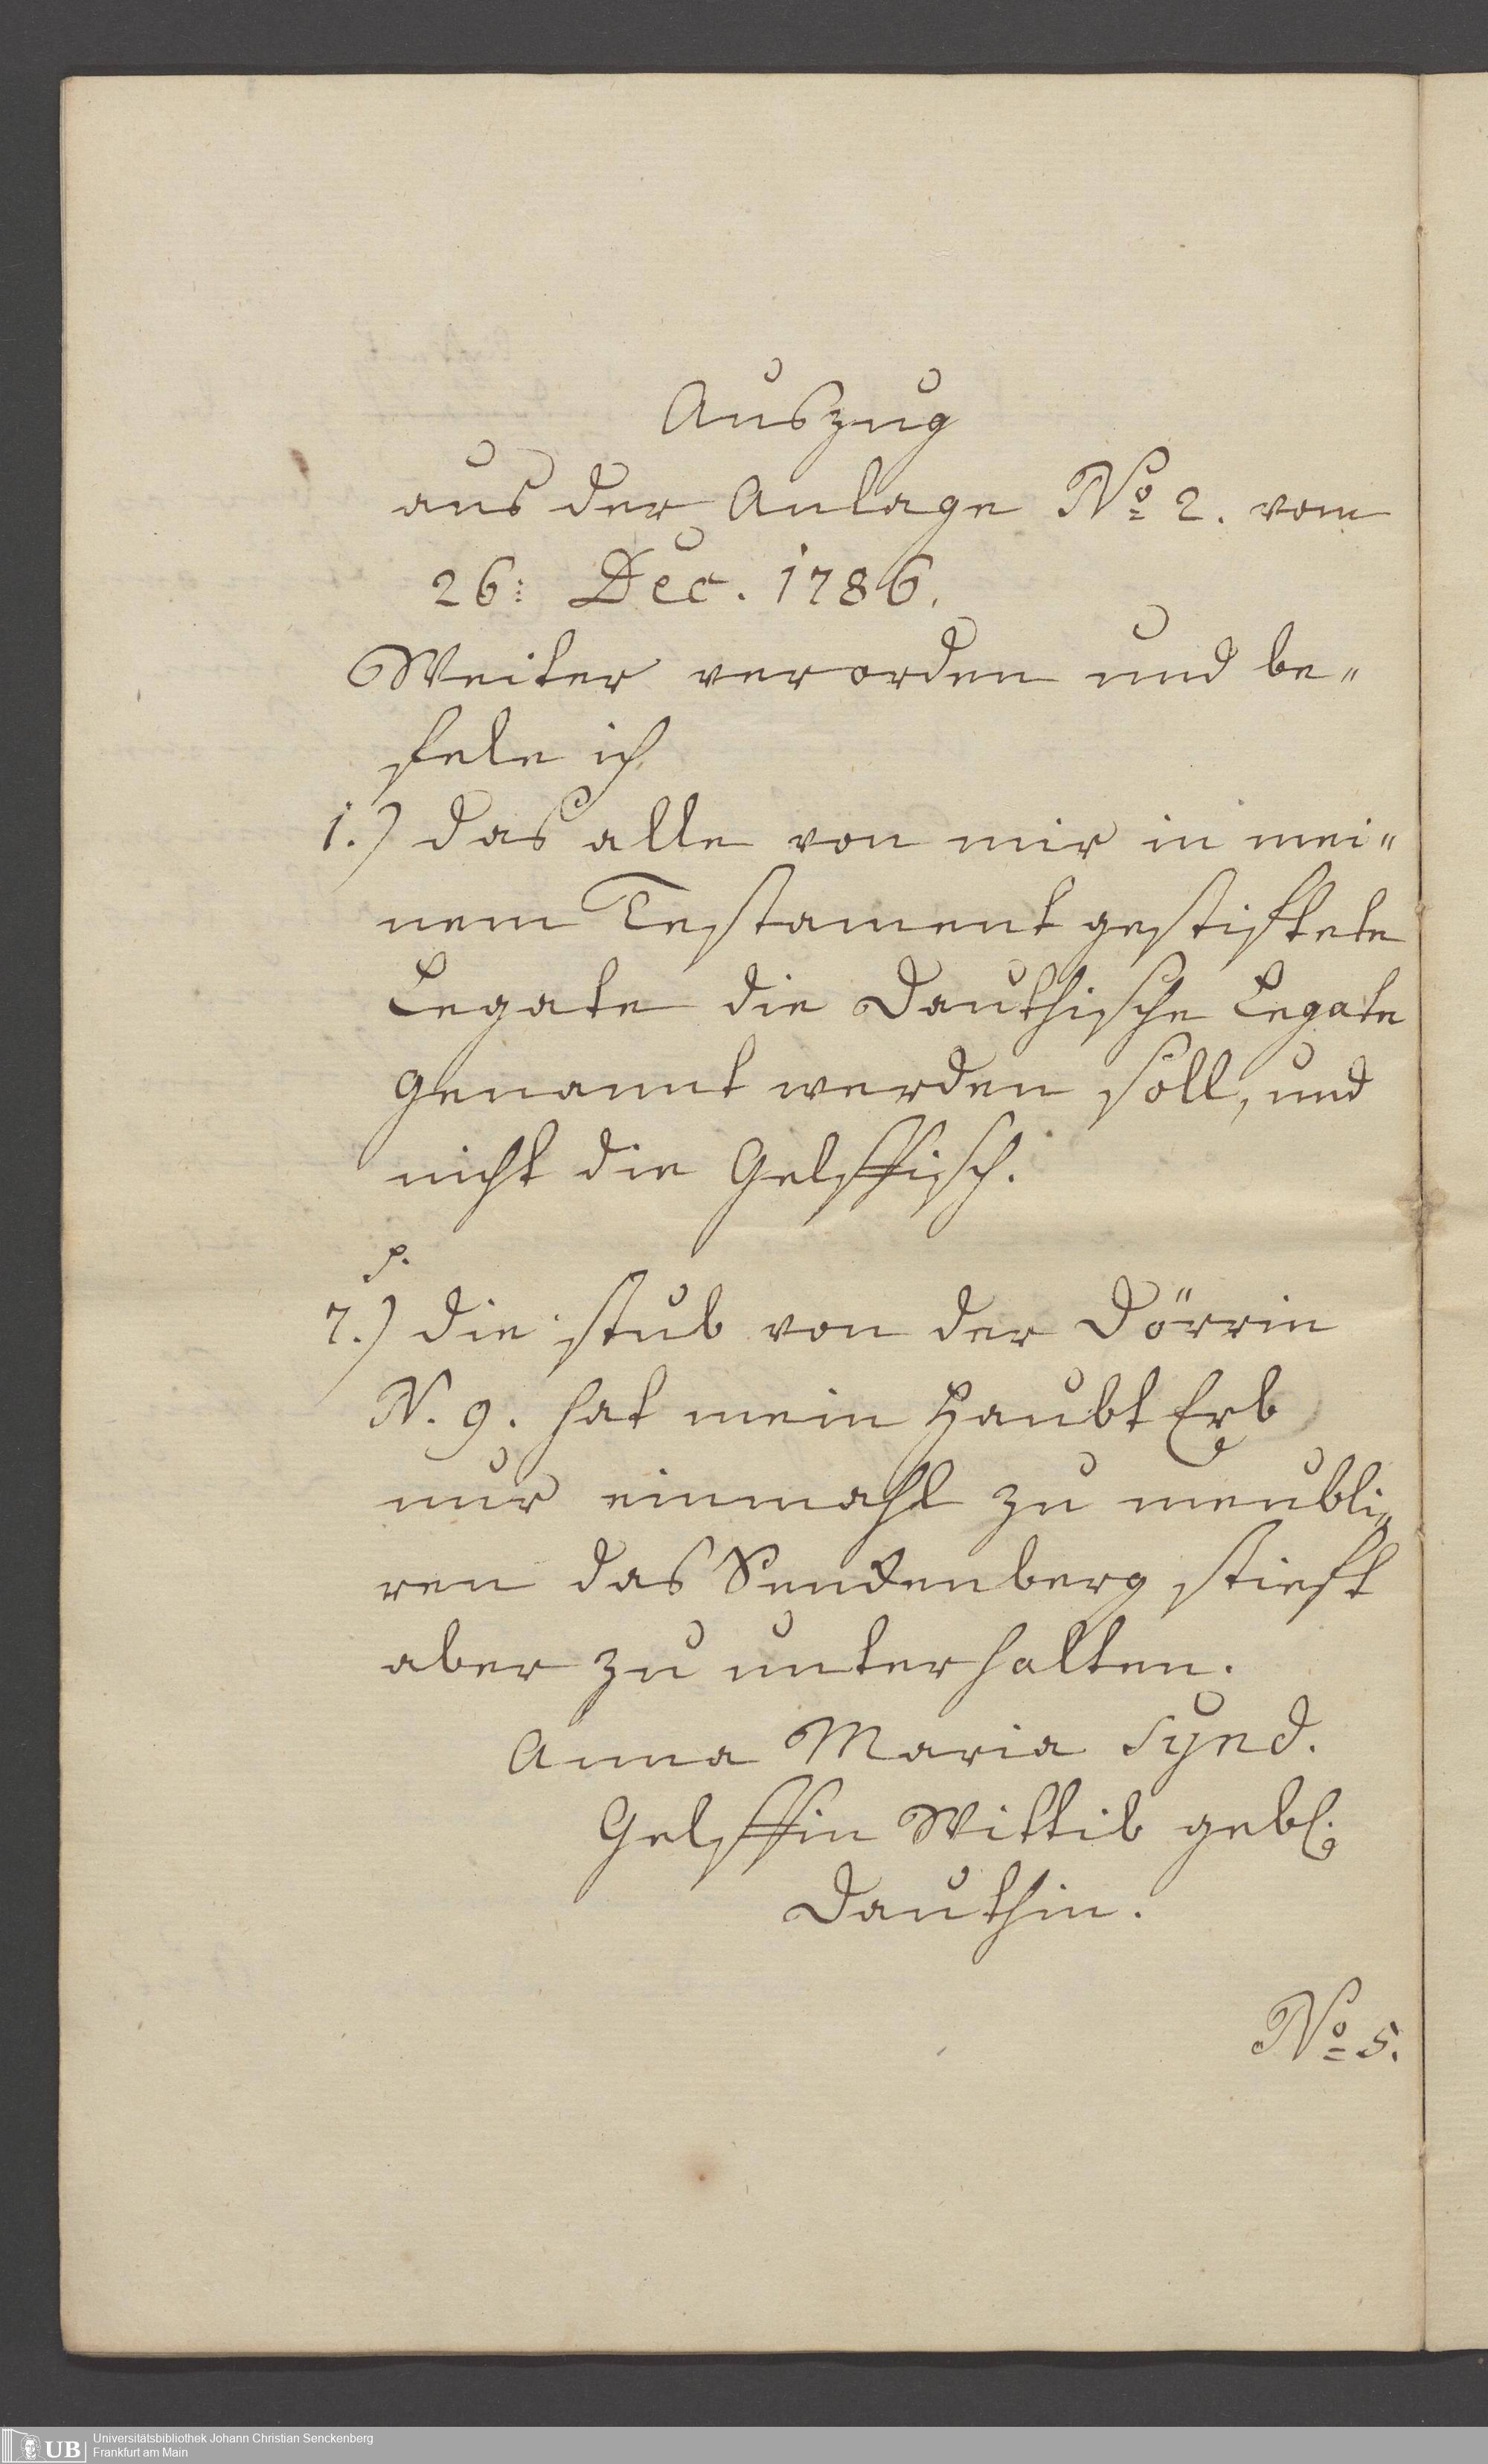 Auszug
aus der Anlage No 2. vom
26: Dec. 1786.
Weiter verorden und be„
fele ich
1.) das alle von mir in mei„
nem Testament gestiftete
Legate die Dauthische Legate
genannt werden soll, und
nicht die Gelffisch.
p.
7.) die stub von der Dörrin
N. 9. hat mein Haubt Erb
nur einmahl zu meubli„
ren das Senckenberg stieft
aber zu unterhalten.
Anna Maria Synd.
Gelffin Wittib gebl:
Dauthin.
No 5.
UB
Universitätsbibliothek Johann Christian Senckenberg
Frankfurt am Main